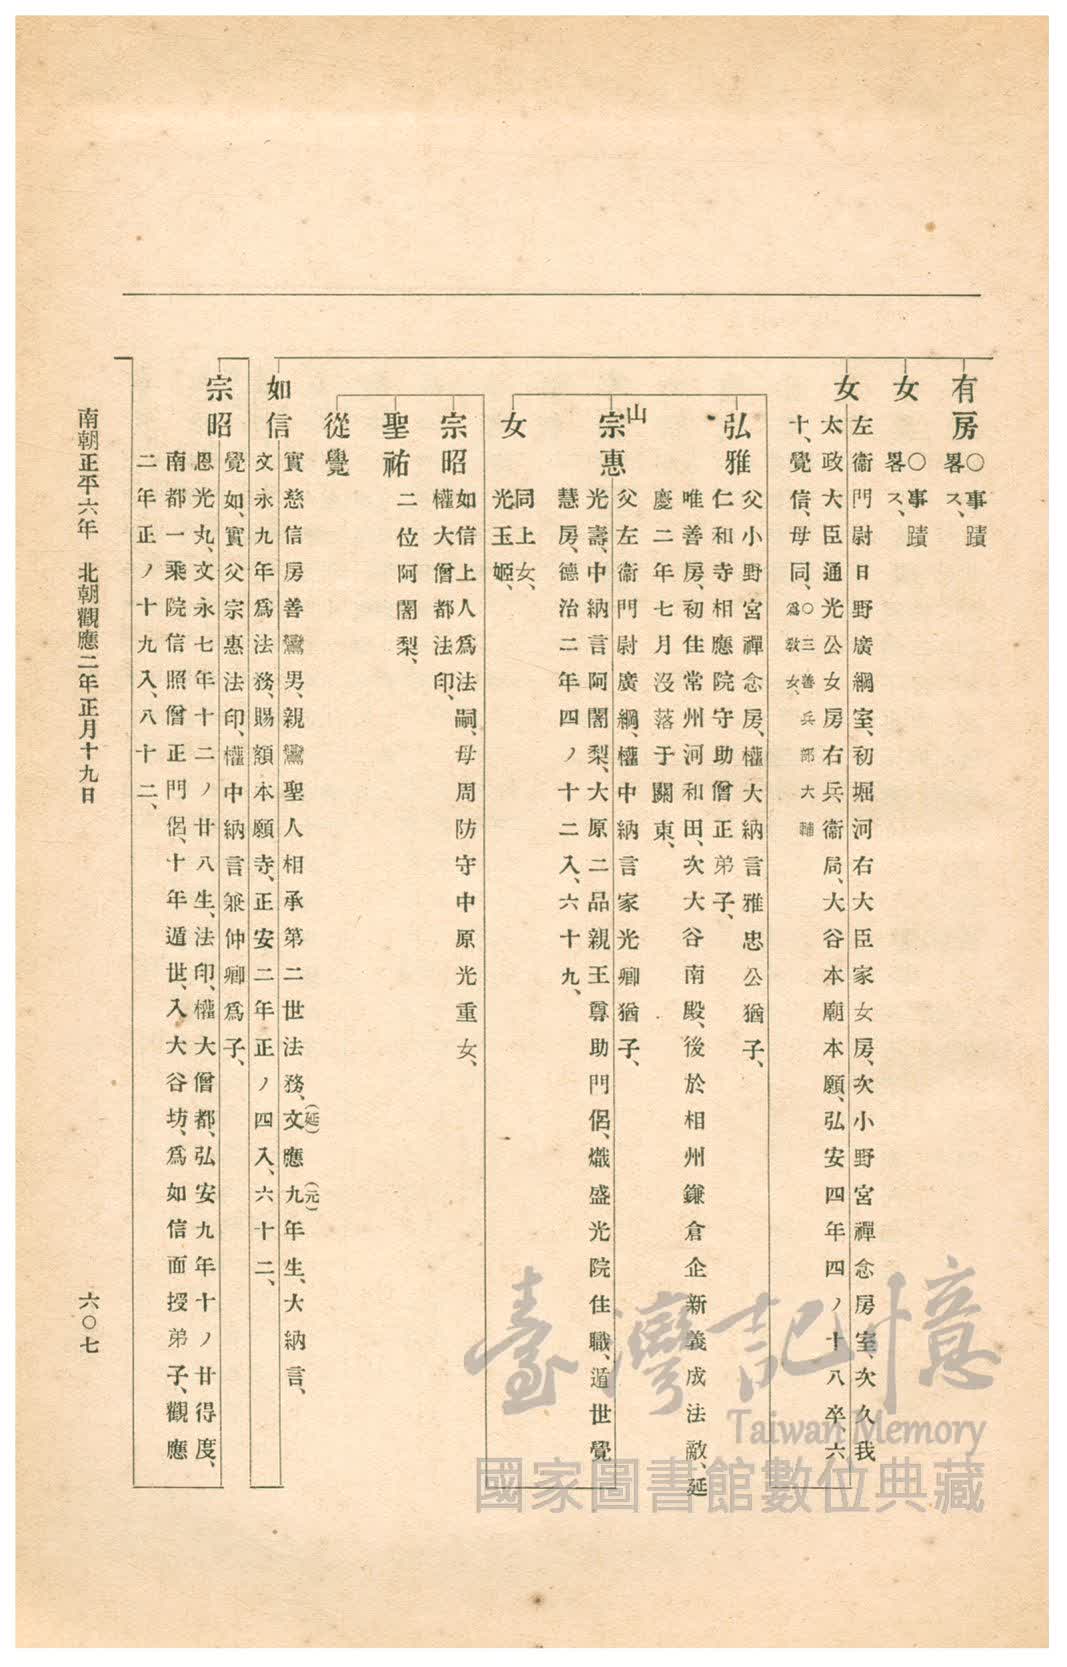 有房
○事蹟
畧ス、
女
○事蹟
畧ス、
女
左衞門尉日野廣綱室、初堀河右大臣家女房、次小野宮禪念房室、次久我
太政大臣通光公女房右兵衞局、大谷本廟本願、弘安四年四ノ十八卒、六
十、覺信、母同、○三善兵部大輔
爲敎女、
弘雅
父小野宮禪念房、權大納言雅忠公猶子、
仁和寺相應院守助僧正弟子、
唯善房、初住常州河和田、次大谷南殿、後於相州鎌倉企新義成法敵、延
慶二年七月沒落于關東、
山
宗惠
父左衞門尉廣綱、權中納言家光卿猶子、
光壽、中納言阿闍梨、大原二品親王尊助門侶、熾盛光院住職、遁世覺
慧房、德治二年四ノ十二入、六十九、
女
同上女、
光玉姬、
宗昭
如信上人爲法嗣、母周防守中原光重女、
權大僧都法印、
聖祐
二位阿闍梨、
從覺
如信
實慈信房善鸞男、親鸞聖人相承第二世法務、文(延)應九(元)年生、大納言、
文永九年爲法務、賜額本願寺、正安二年正ノ四入、六十二、
宗昭
覺如、實父宗惠法印、權中納言兼仲卿爲子、
恩光丸、文永七年十二ノ廿八生、法印、權大僧都、弘安九年十ノ廿得度、
南都一乘院信照僧正門侶、十年遁世、入大谷坊、爲如信面授弟子、觀應
二年正ノ十九入、八十二、
南朝正平六年　北朝觀應二年正月十九日
六〇七
臺灣記憶
Taiwan Memory
國家圖書館數位典藏